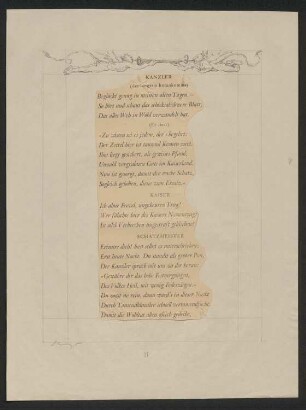 KANZLER
(der langsam herankommt)
Beglückt genug in meinen alten Tagen. –
So hört und schaut das schicksalschwere Blatt,
Das alles Weh in Wohl verwandelt hat.
(Er liest)
«Zu wissen sei es jedem, der's begehrt:
Der Zettel hier ist tausend Kronen wert.
Ihm liegt gesichert, als gewisses Pfand,
Unzahl vergrabnen Guts im Kaiserland.
Nun ist gesorgt, damit der reiche Schatz,
Sogleich gehoben, diene zum Ersatz.»
KAISER
Ich ahne Frevel, ungeheuren Trug!
Wer fälschte hier des Kaisers Namenszug?
Ist solch Verbrechen ungestraft geblieben?
SCHATZMEISTER
Erinnre dich! hast selbst es unterschrieben;
Erst heute Nacht. Du standst als großer Pan,
Der Kanzler sprach mit uns zu dir heran:
«Gewähre dir das hohe Festvergnügen,
Des Volkes Heil, mit wenig Federzügen.»
Du zogst sie rein, dann ward's in dieser Nacht
Durch Tausendkünstler schnell vertausendfacht.
Damit die Wohltat allen gleich gedeihe,